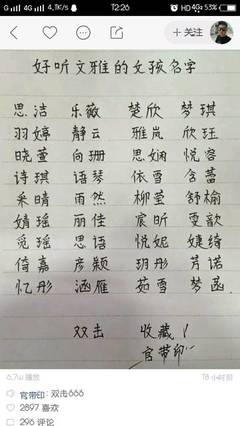 4G 4G 4.7K/s 12:26 HD 4G 4G 53%
+ 关注
好听文雅的女孩名字
思洁 乐薇 楚欣 梦琪
羽婷 静云 雅岚 欣珏
晓萱 向珊 思娴 悦容
诗琪 语琴 依雪 含蕾
采晴 雨然 柳莹 舒榆
婧瑶 丽佳 宸昕 雯歆
觅瑶 思语 悦妮 婕绮
倚嘉 彦颖 玥彤 芳诺
忆彤 涵雁 茹雪 梦函
双击 收藏!
官带印
6.7w 播放 18小时前
官带印: 双击666
2897 喜欢
296 评论